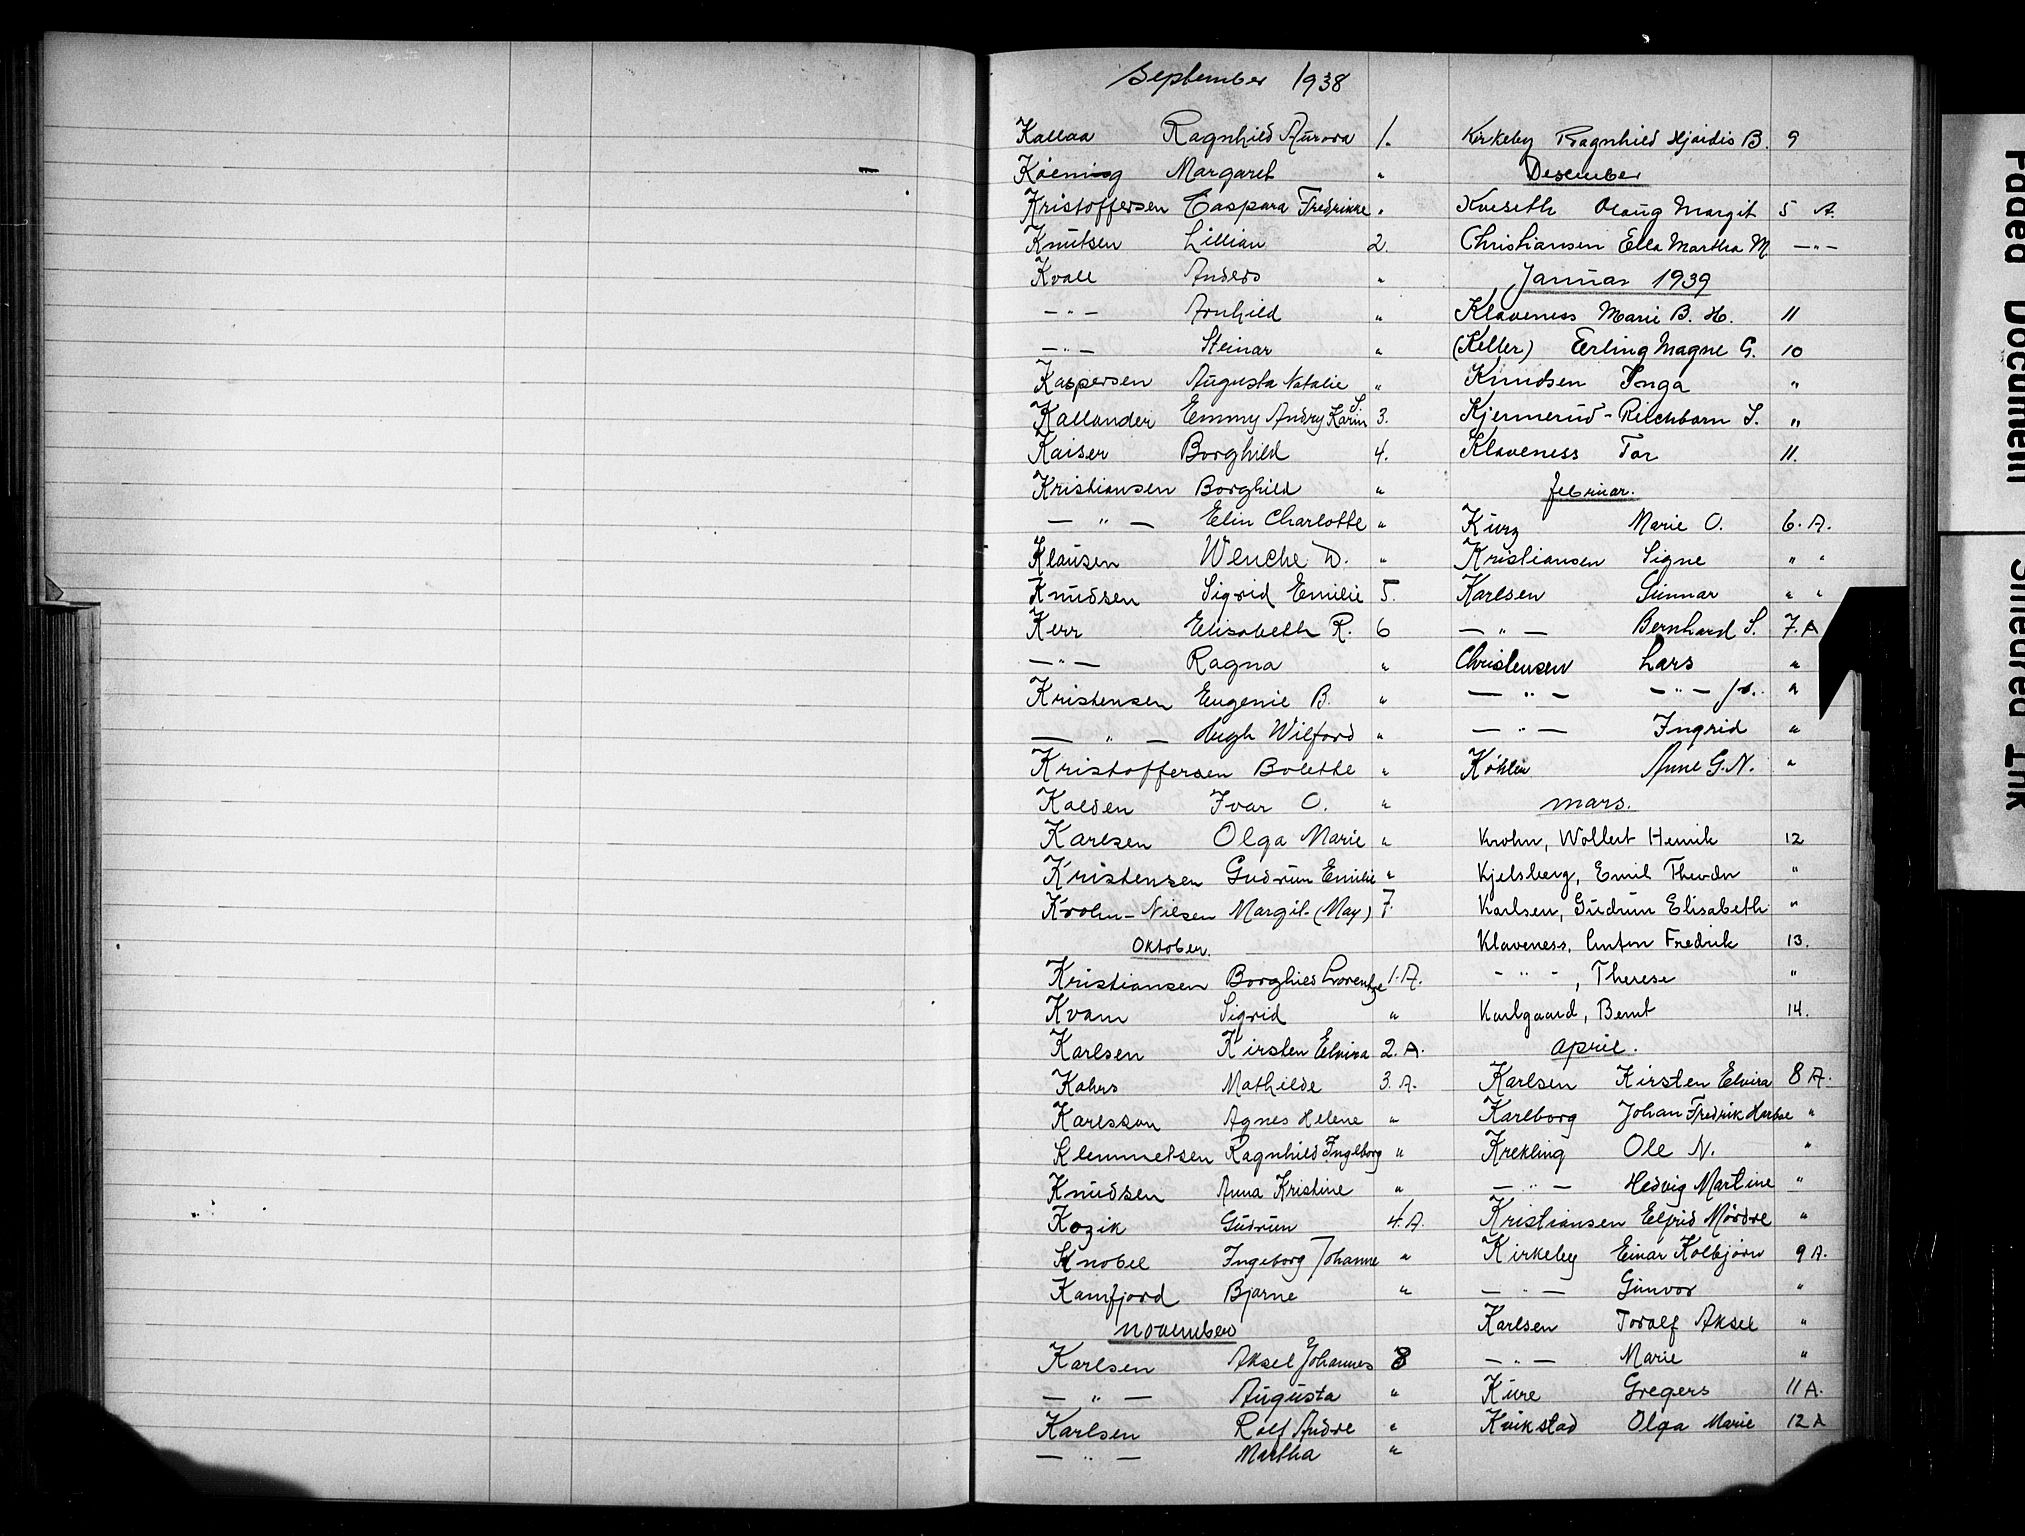 September 1938
Kallaa Ragnhild Aurora 1.
Köening Margaret "
Kristoffersen Caspara Fredrikke "
Knutsen Lillian 2.
Kvale Anders "
— " — Arnhild "
— " — Steinar "
Kaspersen Augusta Natalie "
Kallander Emmy Andry Karin S 3.
Kaiser Borghild 4.
Kristiansen Borghild "
— " — Elin Charlotte "
Klausen Wenche D. "
Knudsen Sigrid Emilie 5.
Kerr Elisabeth R. 6
— " — Ragna "
Kristensen Eugenie B. "
— " — Hugh Wilford "
Kristoffersen Bolette "
Kalsen Ivar O. "
Karlsen Olga Marie "
Kristensen Gudrun Emilie "
Krohn-Nilsen Margit (May) 7.
Oktober.
Kristiansen Borghild Lorentze 1. A.
Kvam Sigrid "
Karlsen Kirsten Elvira 2. A.
Kahrs Mathilde 3. A.
Karlsson Agnes Helene "
Klemmetsen Ragnhild Ingeborg "
Knudsen Anna Kristine "
Kozik Gudrun 4. A.
Knobel Ingeborg Johanne "
Kamfjord Bjarne "
November
Karlsen Aksel Johannes 8
— " — Augusta "
Karlsen Rolf Andre "
— " — Martha "
Kirkeby Ragnhild Hjørdis B. 9
Desember
Kveseth Olaug Margit 5 A.
Christiansen Ella Martha M — " —
Januar 1939
Klaveness Marie B. H. 11
(Keller) Erling Magne G. 10
Knudsen Inga "
Kjennerud-Reichborn S. "
Klaveness Tor 11.
februar.
Kurz Marie O. 6. A.
Kristiansen Signe " "
Karlsen Gunnar " "
— " — Bernhard S. 7. A
Christensen Lars "
— " — — " — jr. "
— " — Ingrid "
Köhler Anne G. N. "
mars.
Krohn, Wollert Henrik 12
Kjelsberg, Emil Theodor "
Karlsen, Gudrun Elisabeth "
Klaveness, Anton Fredrik 13.
- " - , Therese "
Karlgaard, Bernt 14.
april.
Karlsen Kirsten Elvira 8 A.
Karlborg Johan Fredrik "
Krekling Ole N. "
— " — Hedvig Martine "
Kristiansen Elfrid Mørdre "
Kirkeby Einar Kolbjørn 9 A.
— " — Gunvor "
Karlsen Toralf Aksel "
— " — Marie "
Kure Gregers 11 A.
Kvikstad Olga Marie 12 A
Faded Document
Smeared Ink